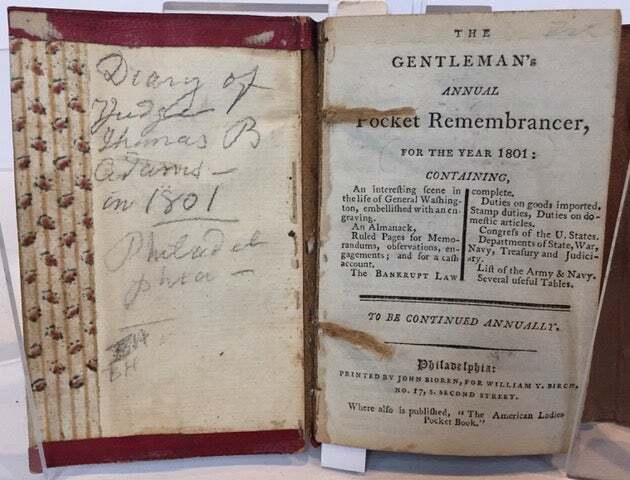 Diary of
Judge
Thomas B
Adams —
in 1801
Philadel
phia —
BH
THE
GENTLEMAN's
ANNUAL
Pocket Remembrancer,
FOR THE YEAR 1801:
CONTAINING,
An interesting scene in
the life of General Washing-
ton, embellished with an en-
graving.
An Almanack,
Ruled Pages for Memo-
randums, observations, en-
gagements; and for a cash
account.
The BANKRUPT LAW
complete.
Duties on goods imported.
Stamp duties, Duties on do-
mestic articles.
Congress of the U. States.
Departments of State, War,
Navy, Treasury and Judici-
ary.
List of the Army & Navy.
Several useful Tables.
TO BE CONTINUED ANNUALLY.
Philadelphia:
PRINTED BY JOHN BIOREN, FOR WILLIAM Y. BIRCH,
NO. 17, S. SECOND STREET.
Where also is published, "The American Ladies
Pocket Book."